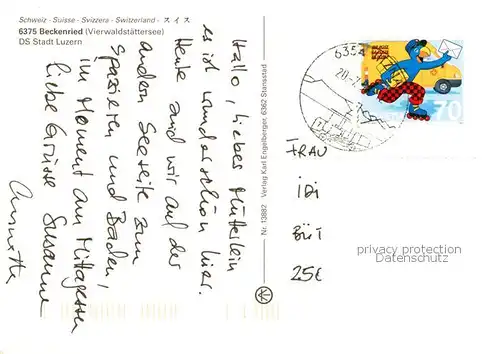 Schweiz - Suisse - Svizzera - Switzerland - スイス
6375 Beckenried (Vierwaldstättersee)
DS Stadt Luzern
Hallo, liebes Mütterlein
es ist wunderschön hier.
Heute sind wir auf der
andern Seeseite zum
Spazieren und Baden!
Im Moment am Mittagessen
Liebe Grüsse Susanne
Annette
Nr. 13882 Verlag Karl Engelberger, 6362 Stansstad
6354
70
FRAU
IDI
BÜT
25E
privacy protection
Datenschutz